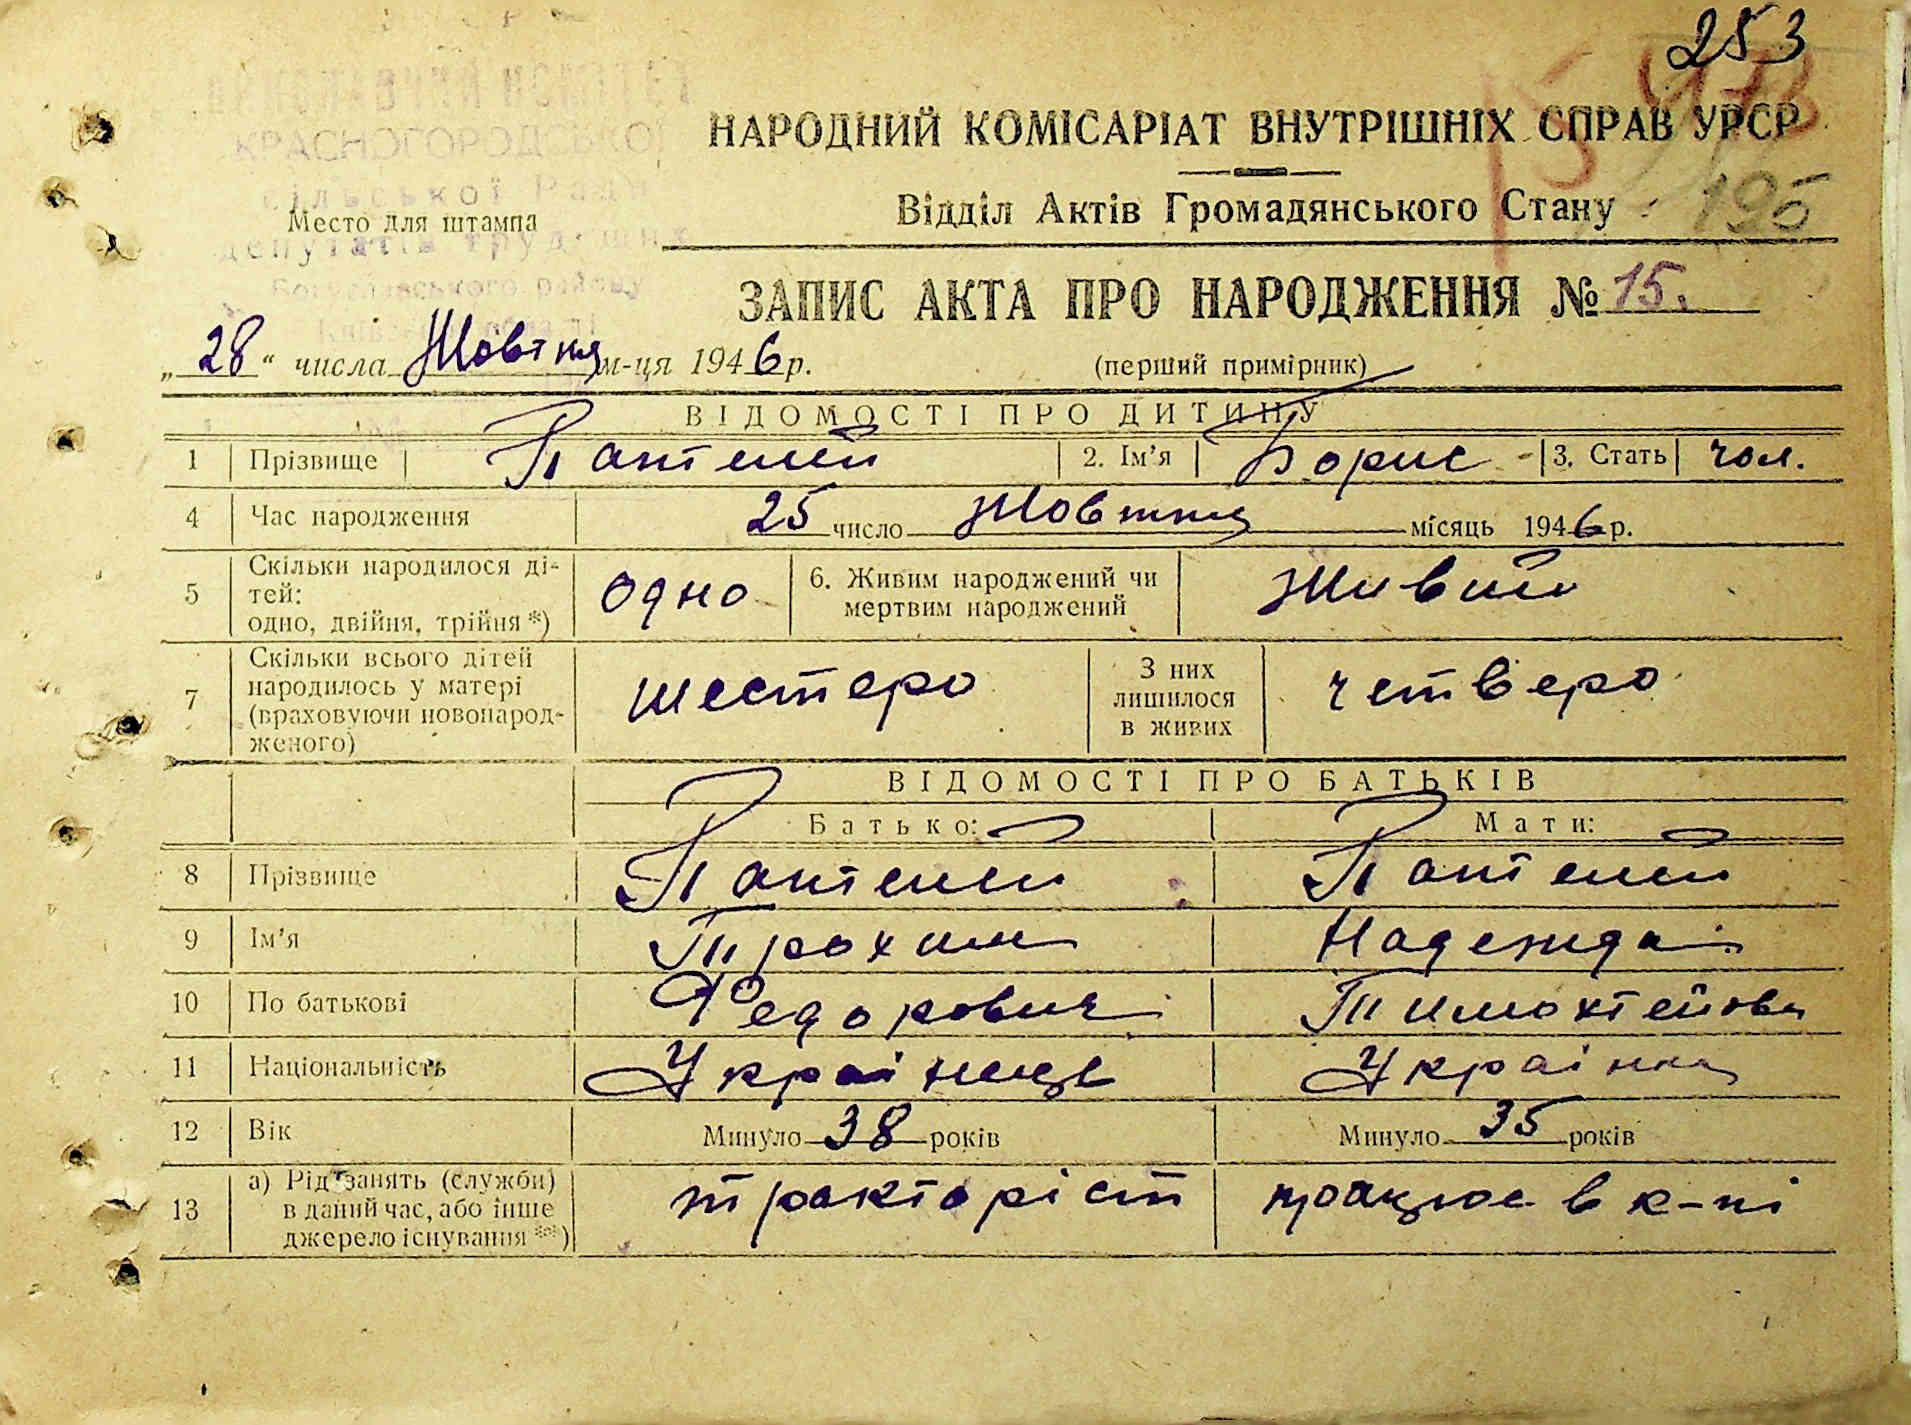 253
ВИКОНАВЧИЙ КОМІТЕТ
КРАСНОГОРОДСЬКОЇ
сільської Ради
депутатів трудящих
Богуславського району
Место для штампа
НАРОДНИЙ КОМІСАРІАТ ВНУТРІШНІХ СПРАВ УРСР
Відділ Актів Громадянського Стану
195
ЗАПИС АКТА ПРО НАРОДЖЕННЯ № 15.
„28“ числа Жовтня м-ця 1946 р.
(перший примірник)
ВІДОМОСТІ ПРО ДИТИНУ
1 Прізвище Пантелей 2. Ім’я Борис 3. Стать чол.
4 Час народження 25 число Жовтня місяць 1946 р.
5 Скільки народилося ді-
тей:
одно, двійня, трійня *)
одно
6. Живим народжений чи
мертвим народжений
Живий
7 Скільки всього дітей
народилось у матері
(враховуючи новонарод-
женого)
шестеро
З них
лишилося
в живих
четверо
ВІДОМОСТІ ПРО БАТЬКІВ
Батько: Мати:
8 Прізвище Пантелей Пантелей
9 Ім’я Трохим Надежда
10 По батькові Федорович Тимохтейовна
11 Національність Українець Українка
12 Вік Минуло 38 років Минуло 35 років
13 а) Рід занять (служби)
в даний час, або інше
джерело існування **)
тракторіст працює в к-пі